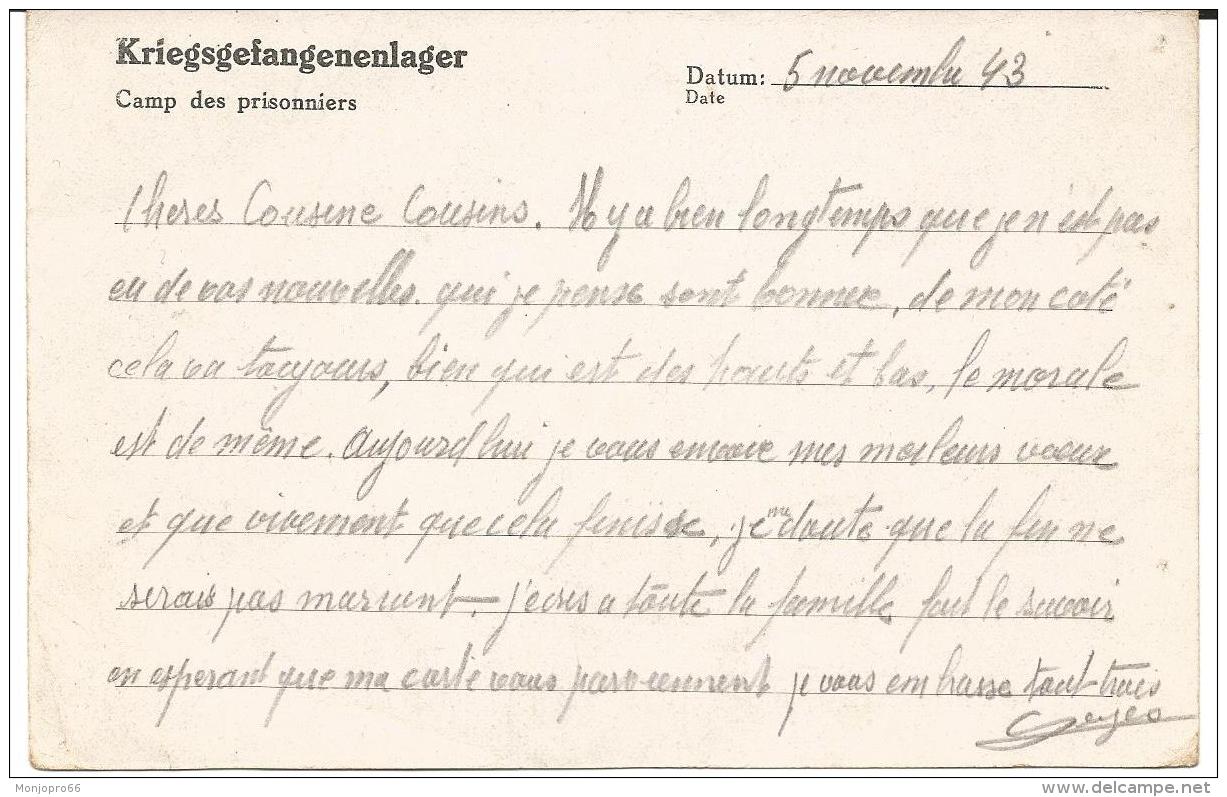 Kriegsgefangenenlager
Camp des prisonniers
Datum: 5 novembre 43
Date
Cheres Cousine Cousins. Il y a bien longtemps que je n'est pas
eu de vos nouvelles. qui je pense sont bonnes, de mon coté
cela va toujours, bien qui est des hauts et bas, le morale
est de même. aujourd'hui je vous envoie mes meileurs voeux
et que vivement que cela finisse, je me doute que la fin ne
serais pas marrant. J'ecris a toute la famille faut le savoir
en esperant que ma carte vous parviennent je vous embrasse tout trois
Monjopro66
delcampe.net